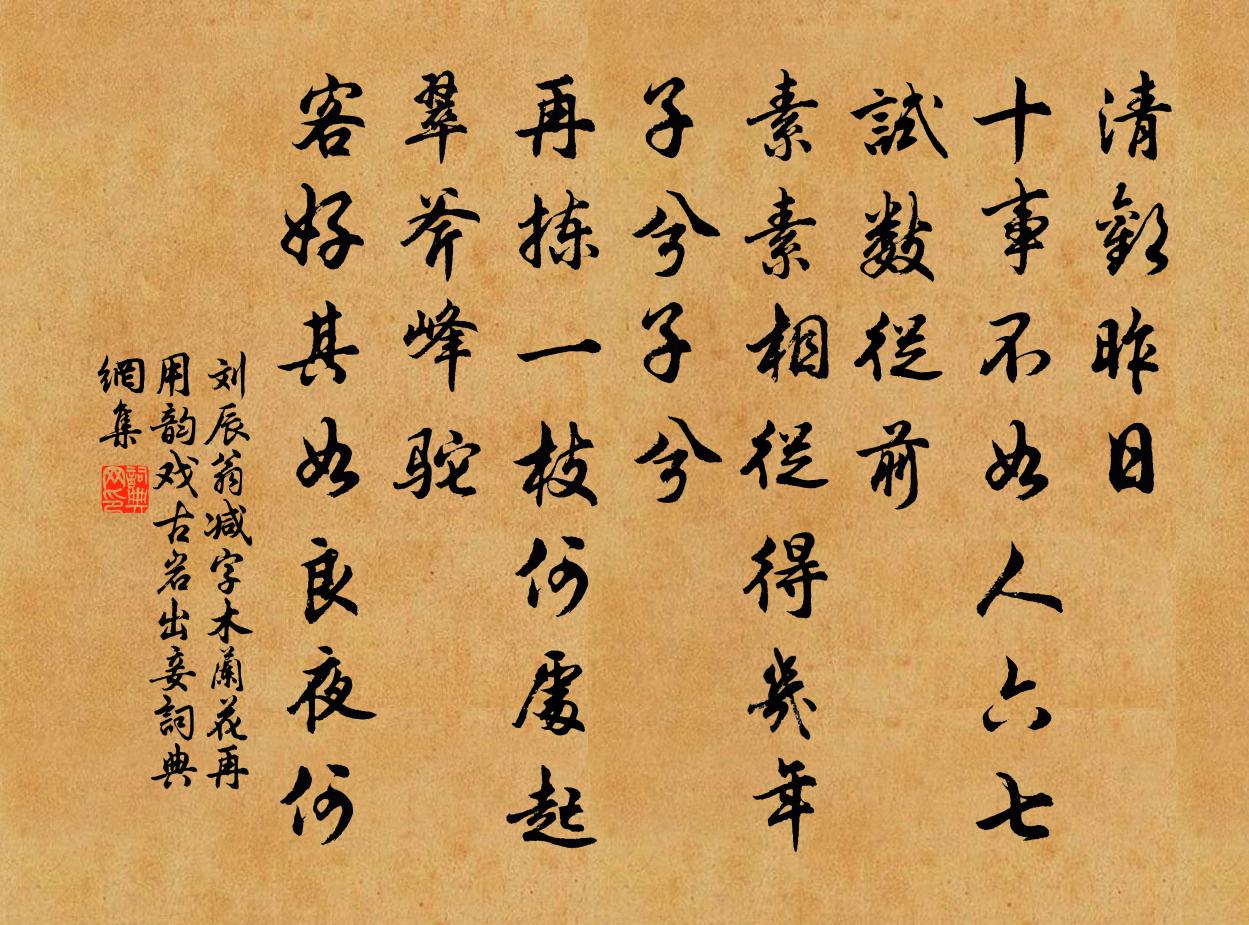 清歡昨日
十事不如人六七
試数從前
素素相從得幾年
子兮子兮
再拣一枝何處起
翠斧峰駝
客好其如良夜何
刘辰翁减字木蘭花再
用韵戏古岩出妾詞典
網集